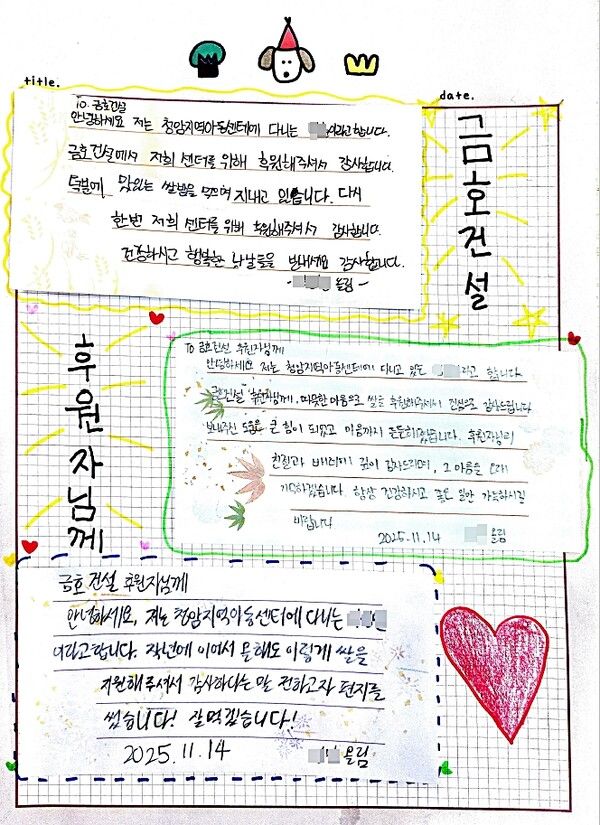 title.
date.
금호건설
To. 금호건설
안녕하세요 저는 청암지역아동센터에 다니는 이라고 합니다.
금호건설에서 저희 센터를 위해 후원해주셔서 감사합니다.
덕분에 맛있는 쌀밥을 먹으며 지내고 있습니다. 다시
한번 저희 센터를 위해 후원해주셔서 감사합니다.
건강하시고 행복한 나날들을 보내세요 감사합니다.
- 올림 -
후원자님께
To 금호건설 후원자님께
안녕하세요 저는 청암지역아동센터에 다니고 있는 라고 합니다.
금호건설 후원자님께, 따뜻한 마음으로 쌀을 후원해주셔서 진심으로 감사드립니다
보내주신 도움은 큰 힘이 되었고 마음까지 든든해졌습니다. 후원자님의
친절과 배려에 깊이 감사드리며, 그 마음을 오래
기억하겠습니다. 항상 건강하시고 좋은 일만 가득하시길
바랍니다
2025.11.14 올림
금호건설 후원자님께
안녕하세요, 저는 청암지역아동센터에 다니는
이라고합니다. 작년에 이어서 올해도 이렇게 쌀을
지원해주셔서 감사하다는 말 전하고자 편지를
썼습니다! 잘먹겠습니다!
2025.11.14 올림